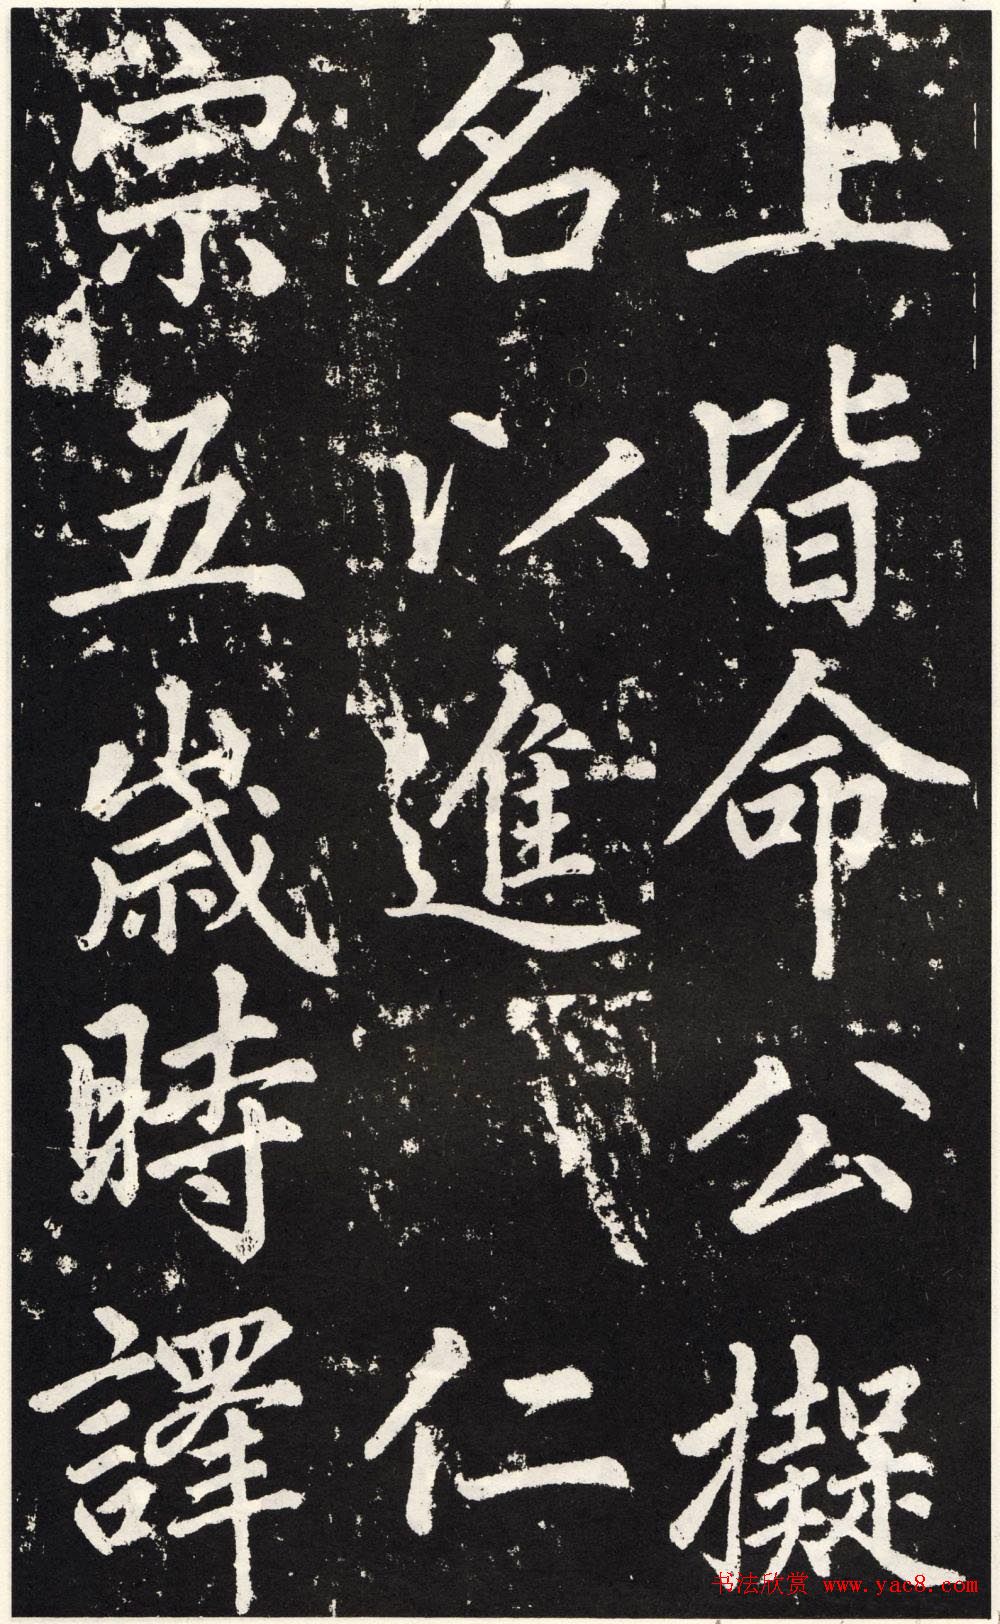 上皆命公擬
名以進仁
宗五歲時譯
书法欣赏 www.yac8.com